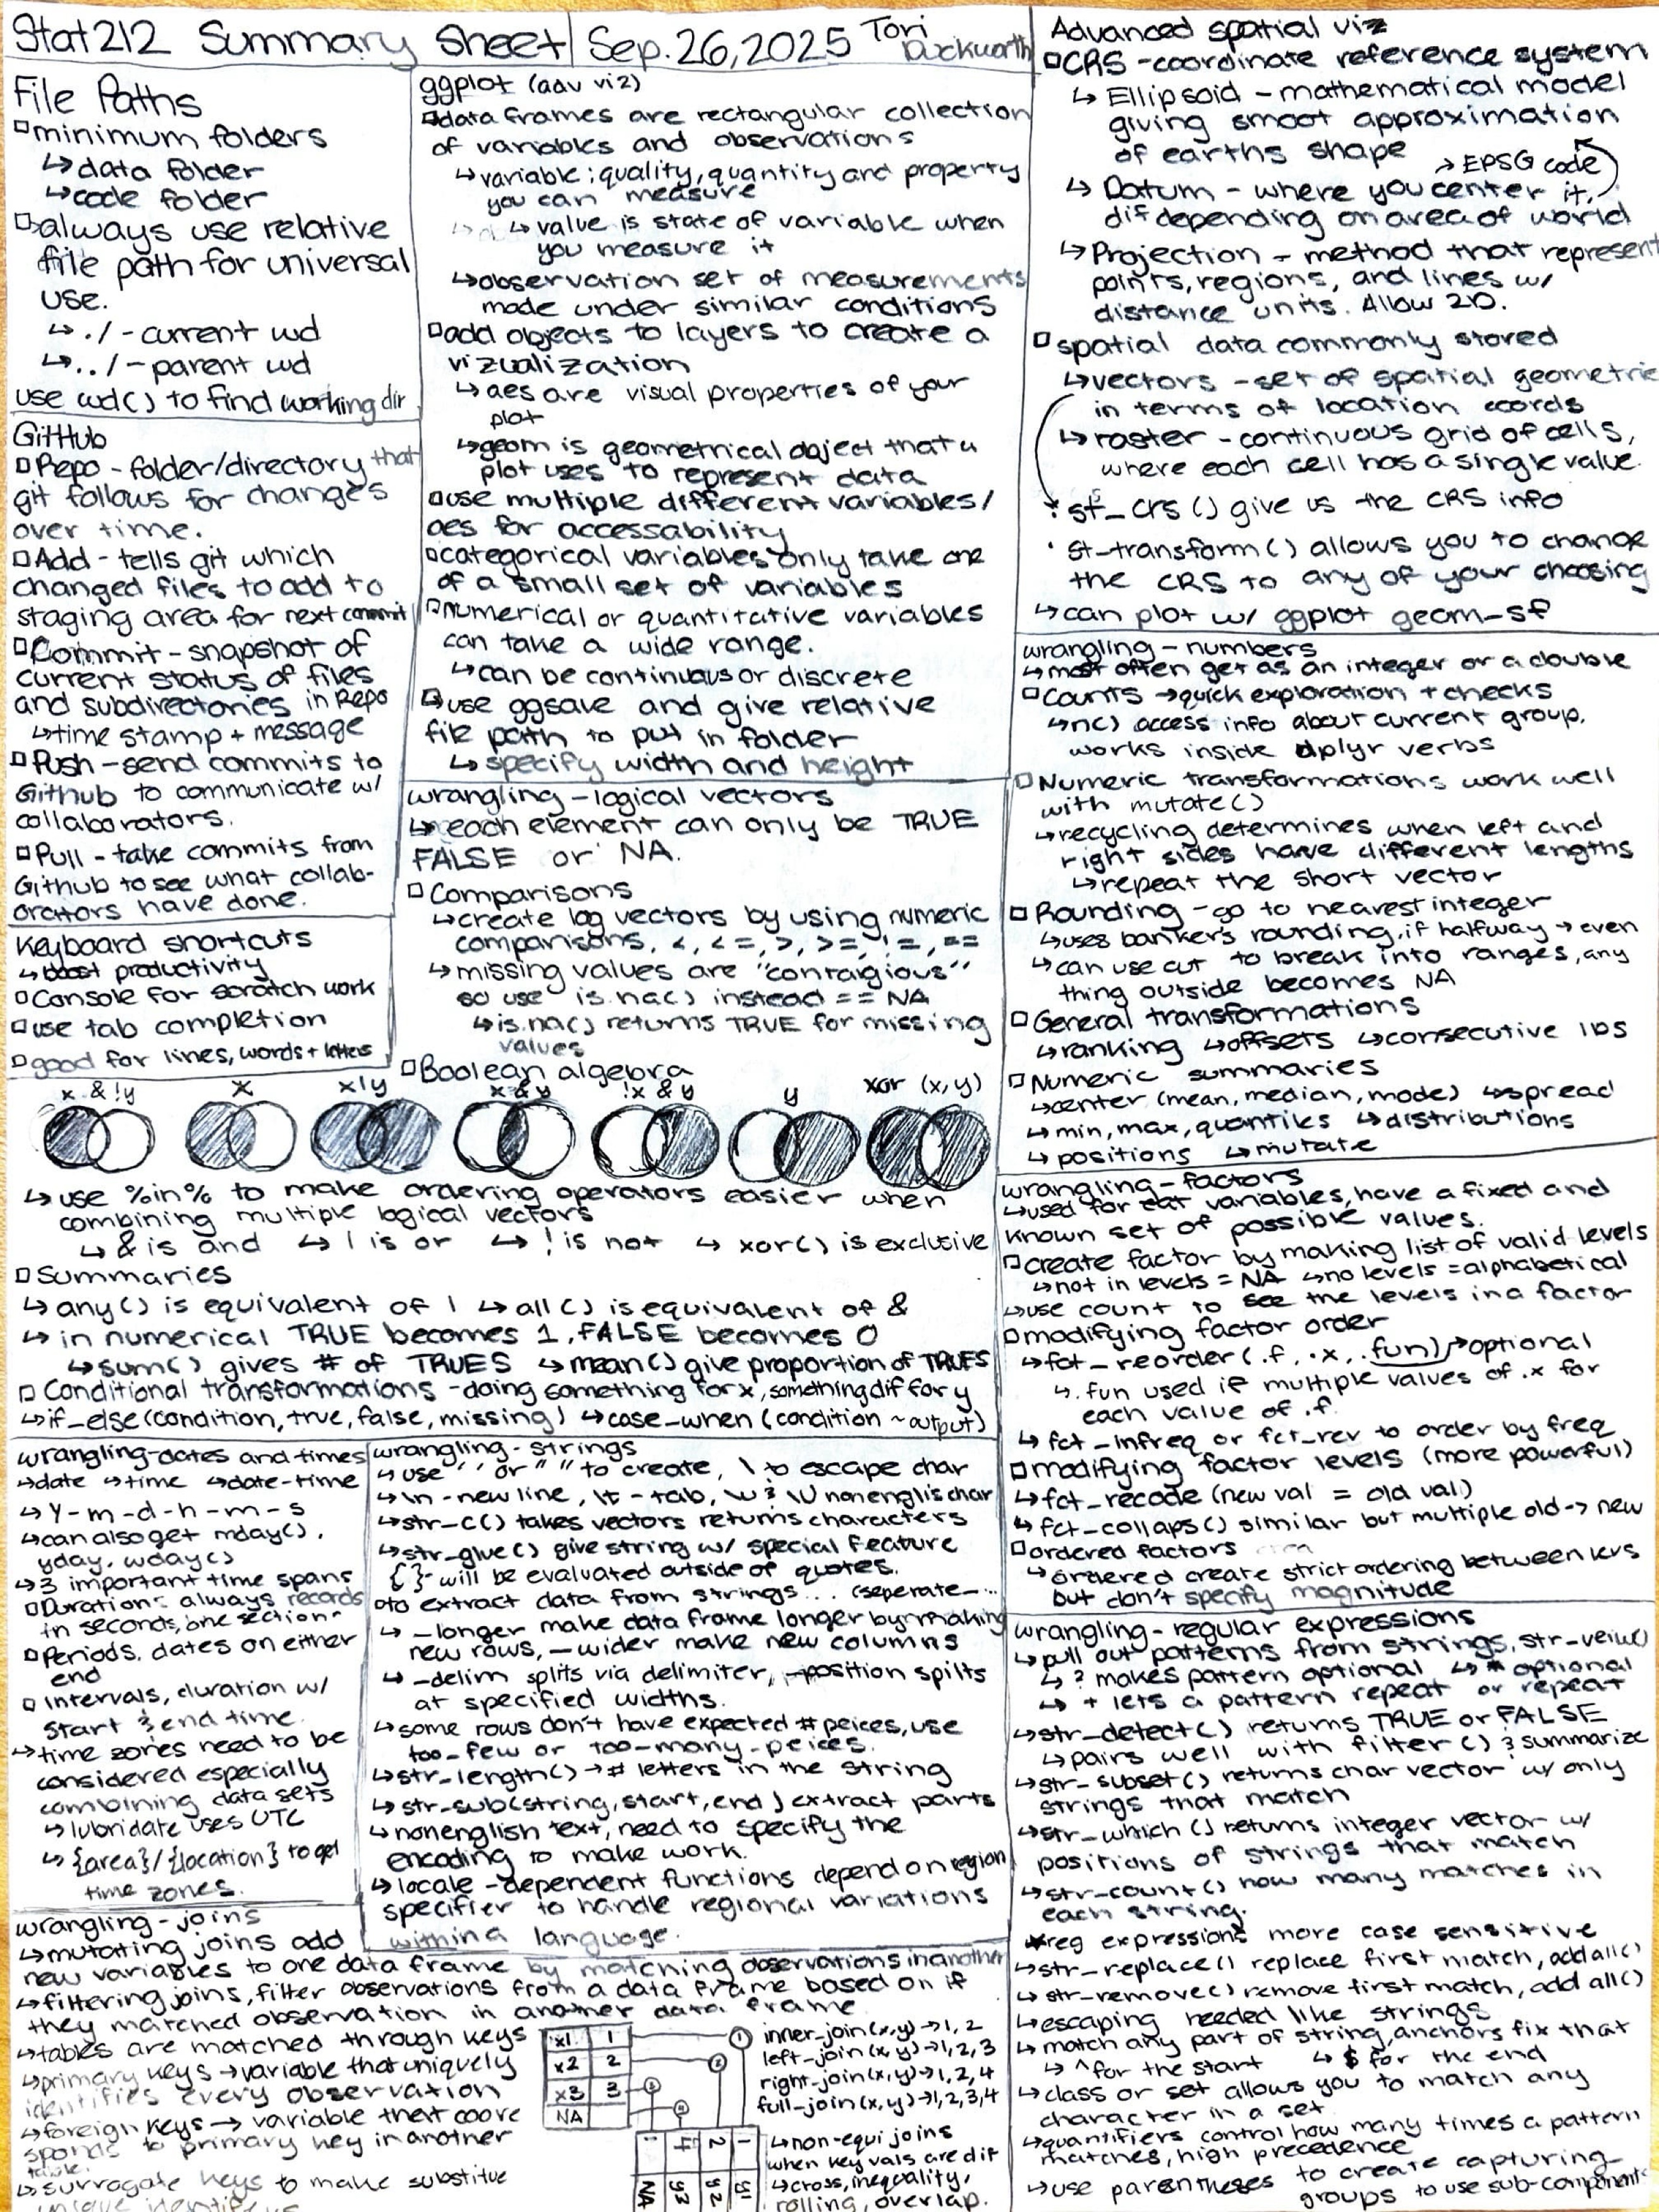 Stat212 Summary Sheet | Sep. 26, 2025 Tori Duckworth
File Paths
□minimum folders
↳data folder
↳code folder
□always use relative
file path for universal
use.
↳./-current wd
↳../-parent wd
use wd() to find working dir
GitHub
□Repo - folder/directory that
git follows for changes
over time.
□Add - tells git which
changed files to add to
staging area for next commit
□Commit - snapshot of
current status of files
and subdirectories in Repo
↳time stamp + message
□Push - send commits to
Github to communicate w/
collaborators.
□Pull - take commits from
Github to see what collab-
orators have done.
Keyboard shortcuts
↳boost productivity
□Console for scratch work
□use tab completion
□good for lines, words + letters
ggplot (adv viz)
□data frames are rectangular collection
of variables and observations
↳variable; quality, quantity and property
you can measure
↳value is state of variable when
you measure it
↳observation set of measurements
made under similar conditions
□add objects to layers to create a
vizualization
↳aes are visual properties of your
plot
↳geom is geometrical object that a
plot uses to represent data
□use multiple different variables/
aes for accessability
□categorical variables only take one
of a small set of variables
□numerical or quantitative variables
can take a wide range.
↳can be continuous or discrete
□use ggsave and give relative
file path to put in folder
↳specify width and height
wrangling - logical vectors
↳each element can only be TRUE
FALSE or NA.
□Comparisons
↳create log vectors by using numeric
comparisons, <, <=, >, >=, !=, ==
↳missing values are "contagious"
so use is.na() instead == NA
↳is.na() returns TRUE for missing
values
□Boolean algebra
x & !y x x|y x & y !x & y y xor (x,y)
↳use %in% to make ordering operators easier when
combining multiple logical vectors
↳ & is and ↳ | is or ↳ ! is not ↳ xor() is exclusive
□Summaries
↳any() is equivalent of | ↳all() is equivalent of &
↳in numerical TRUE becomes 1, FALSE becomes 0
↳sum() gives # of TRUES ↳mean() give proportion of TRUES
□Conditional transformations - doing something for x, something dif for y
↳if_else(condition, true, false, missing) ↳case_when (condition ~ output)
wrangling-dates and times
↳date ↳time ↳date-time
↳Y-m-d-h-m-s
↳can also get mday(),
yday, wday()
↳3 important time spans
□Duration: always records
in seconds, one section
□Periods, dates on either
end
□Intervals, duration w/
start & end time.
↳time zones need to be
considered especially
combining data sets
↳lubridate uses UTC
↳{area}/{location} to get
time zones.
wrangling-strings
↳use ' ' or " " to create, \ to escape char
↳\n - new line, \t - tab, \u & \U nonenglis char
↳str_c() takes vectors returns characters
↳str_glue() give string w/ special feature
{ }- will be evaluated outside of quotes.
□to extract data from strings... (seperate_...
↳_longer make data frame longer by making
new rows, _wider make new columns
↳_delim splits via delimiter, _position spilts
at specified widths.
↳some rows don't have expected # peices, use
too_few or too_many_peices.
↳str_length() → # letters in the string
↳str_sub(string, start, end) extract parts
↳nonenglish text, need to specify the
encoding to make work.
↳locale - dependent functions depend on region
specifier to handle regional variations
within a language.
wrangling - joins
↳mutating joins add
new variables to one data frame by matching observations in another
↳filtering joins, filter observations from a data frame based on if
they matched observation in another data frame
↳tables are matched through keys
↳primary keys → variable that uniquely
identifies every observation
↳foreign keys → variable that coore
sponds to primary key in another
table.
↳surrogate keys to make substitue
x1 1
x2 2
x3 3
NA
1
2
3
4
inner_join(x,y)→1,2
left_join(x,y)→1,2,3
right_join(x,y)→1,2,4
full_join(x,y)→1,2,3,4
4 2 1
NA y3 y2 y1
↳non-equi joins
when key vals are dif
↳cross, inequality,
rolling, overlap.
Advanced spatial viz
□CRS - coordinate reference system
↳Ellipsoid - mathematical model
giving smoot approximation
of earths shape
→EPSG code
↳Datum - where you center it,
dif depending on area of world
↳Projection - method that represent
points, regions, and lines w/
distance units. Allow 2D.
□spatial data commonly stored
↳vectors - set of spatial geometrie
in terms of location coords
↳raster - continuous grid of cells,
where each cell has a single value.
st_crs() give us the CRS info
· st_transform() allows you to change
the CRS to any of your choosing
↳can plot w/ ggplot geom_sf
wrangling - numbers
↳most often get as an integer or a double
□Counts →quick exploration + checks
↳n() access info about current group,
works inside dplyr verbs
□Numeric transformations work well
with mutate()
↳recycling determines when left and
right sides have different lengths
↳repeat the short vector
□Rounding - go to nearest integer
↳uses bankers rounding, if halfway → even
↳can use cut to break into ranges, any
thing outside becomes NA
□General transformations
↳ranking ↳offsets ↳consecutive IDS
□Numeric summaries
↳center (mean, median, mode) ↳spread
↳min, max, quantiles ↳distributions
↳positions ↳mutate
wrangling-factors
↳used for cat variables, have a fixed and
known set of possible values.
□create factor by making list of valid levels
↳not in levels = NA ↳no levels = alphabetical
↳use count to see the levels in a factor
□modifying factor order
↳fct_reorder(.f, .x, .fun)→optional
↳.fun used if multiple values of .x for
each value of .f.
↳fct_infreq or fct_rev to order by freq
□modifying factor levels (more powerful)
↳fct_recode (new val = old val)
↳fct_collaps() similar but multiple old -> new
□ordered factors
↳ordered create strict ordering between lvls
but don't specify magnitude
wrangling - regular expressions
↳pull out patterns from strings, str_veiw()
↳? makes pattern optional ↳* optional
↳+ lets a pattern repeat or repeat
↳str_detect() returns TRUE or FALSE
↳pairs well with filter() & summarize
↳str_subset() returns char vector w/ only
strings that match
↳str_which() returns integer vector w/
positions of strings that match
↳str_count() how many matches in
each string.
*reg expressions more case sensitive
↳str_replace() replace first match, add all()
↳str_remove() remove first match, add all()
↳escaping needed like strings
↳match any part of string, anchors fix that
↳^for the start ↳$ for the end
↳class or set allows you to match any
character in a set
↳quantifiers control how many times a pattern
matches, high precedence
↳use parentheses to create capturing
groups to use sub-components